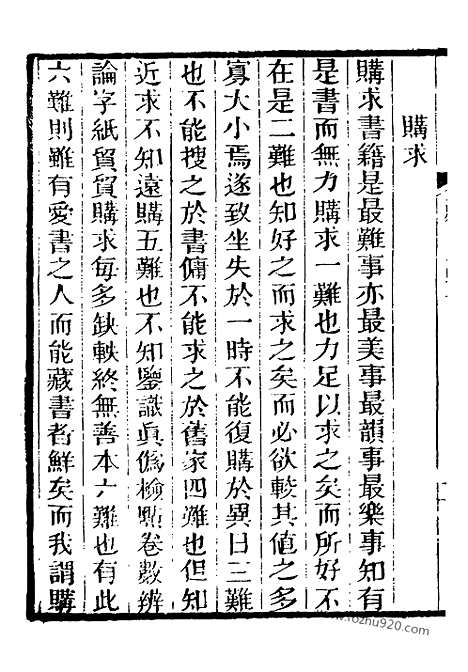 購求
購求書籍是最難事亦最美事最韻事最樂事知有
是書而無力購求一難也力足以求之矣而所好不
在是二難也知好之而求之矣而必欲較其值之多
寡大小焉遂致坐失於一時不能復購於異日三難
也不能搜之於書傭不能求之於舊家四難也但知
近求不知遠購五難也不知鑒識眞僞檢點卷數辨
論字紙貿貿購求每多缺軼終無善本六難也有此
六難則雖有愛書之人而能藏書者鮮矣而我謂購
www.fozhu920.com